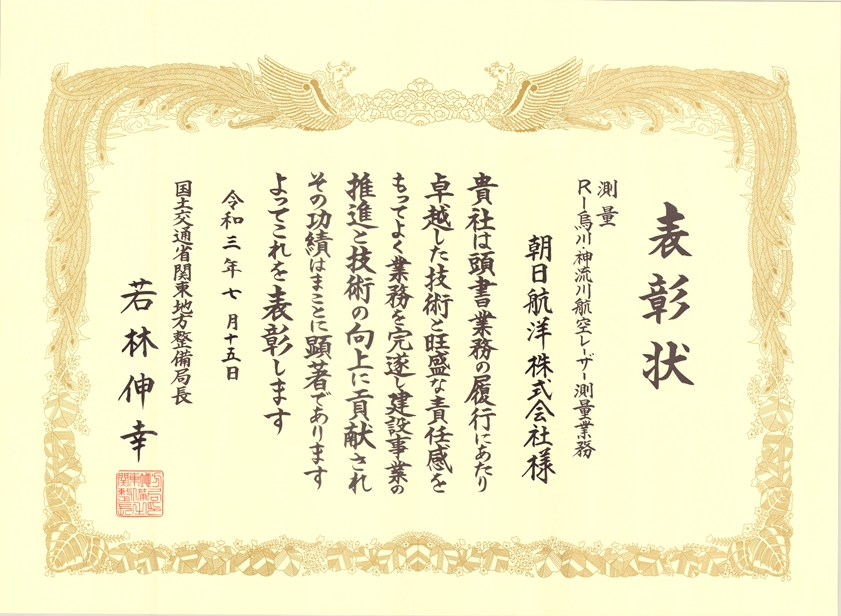 表彰状
測量
R1烏川・神流川航空レーザー測量業務
朝日航洋株式会社様
貴社は頭書業務の履行にあたり
卓越した技術と旺盛な責任感を
もってよく業務を完遂し建設事業の
推進と技術の向上に貢献され
その功績はまことに顕著であります
よってこれを表彰します
令和三年七月十五日
国土交通省関東地方整備局長
若林伸幸